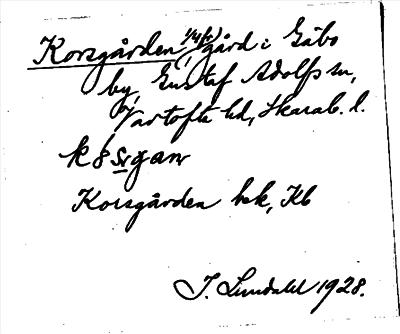 Korsgården, 1/4 (fr) gård i Gäbo
by, Gustaf Adolfs sn,
Vartofta hd, Skarab. l.
Korsgården bek, Kb
J. Lundahl 1928.